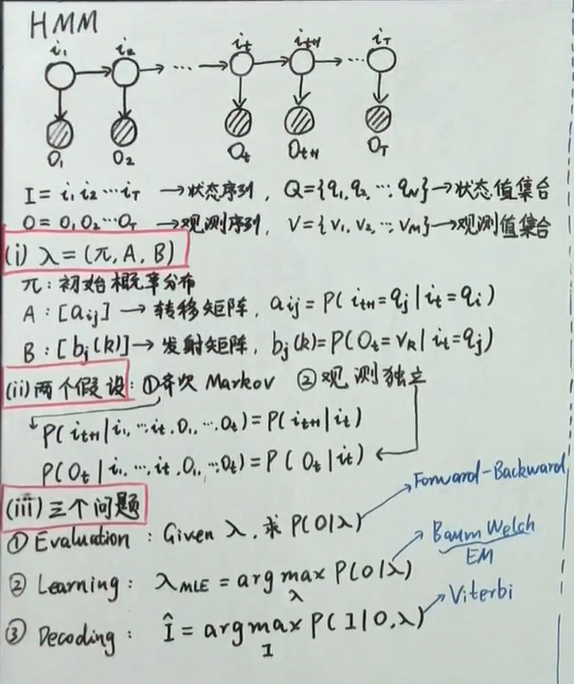 HMM
i₁ i₂ iₜ iₜ₊₁ i_T
→ ⋯ → → ⋯
O₁ O₂ Oₜ Oₜ₊₁ O_T
I = i₁ i₂ ⋯ i_T → 状态序列, Q = {q₁, q₂, ⋯, q_N} → 状态值集合
O = O₁ O₂ ⋯ O_T → 观测序列, V = {v₁, v₂, ⋯, v_M} → 观测值集合
(i) λ = (π, A, B)
π: 初始概率分布
A: [aᵢⱼ] → 转移矩阵, aᵢⱼ = P(iₜ₊₁ = qⱼ | iₜ = qᵢ)
B: [bⱼ(k)] → 发射矩阵, bⱼ(k) = P(Oₜ = v_k | iₜ = qⱼ)
(ii) 两个假设: ① 齐次 Markov ② 观测独立
P(iₜ₊₁ | i₁, ⋯, iₜ, O₁, ⋯, Oₜ) = P(iₜ₊₁ | iₜ)
P(Oₜ | i₁, ⋯, iₜ, O₁, ⋯, Oₜ) = P(Oₜ | iₜ)
(iii) 三个问题
① Evaluation: Given λ, 求 P(O|λ) → Forward-Backward
② Learning: λ_MLE = arg max_λ P(O|λ) → Baum Welch
EM
③ Decoding: Î = arg max_I P(I|O, λ) → Viterbi